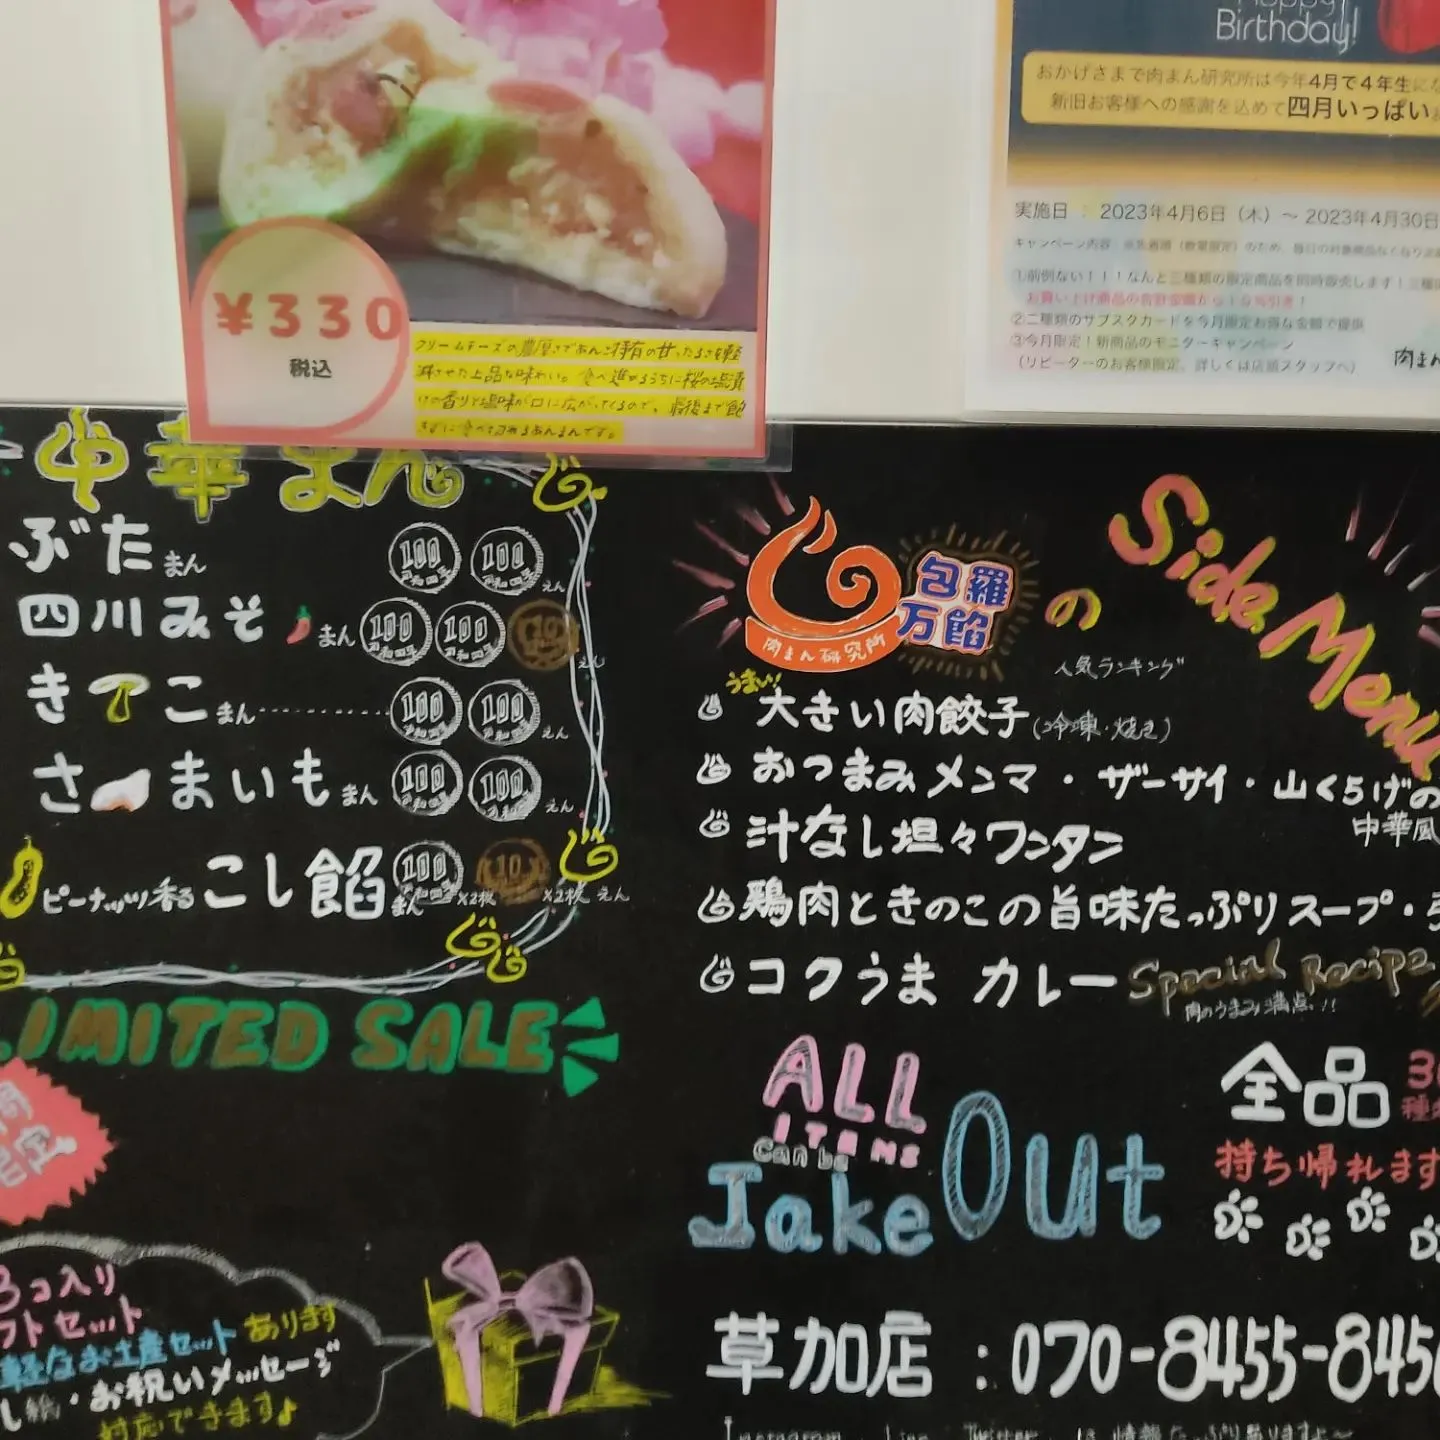 ¥330
税込
クリームチーズの濃厚さであんこ特有の甘ったるさを軽
減させた上品な味わい。食べ進めるうちに桜の塩漬
けの香りと塩味が口に広がってくるので、最後まで飽
きずに食べ切れるあんまんです。
Happy
Birthday!
おかげさまで肉まん研究所は今年4月で4年生に
新旧お客様への感謝を込めて四月いっぱい
実施日 : 2023年4月6日(木)~2023年4月30日
①前例ない!!!なんと三種類の限定商品を同時販売します!三種
②二種類のサブスクカードを今月限定お得な金額で提供
③今月限定!新商品のモニターキャンペーン
(リピーターのお客様限定、詳しくは店頭スタッフへ)
肉まん
中華まん
ぶたまん 100 100 えん
四川みそまん 100 100 10 えん
きのこまん 100 100 えん
さつまいもまん 100 100 えん
ピーナッツ香るこし餡まん 100 ×2枚 10 ×2枚 えん
LIMITED SALE
3コ入り
フトセット
軽なお土産セットあります
し紙・お祝いメッセージ
対応できます♪
肉まん研究所
包羅万餡
の
Side Menu
人気ランキング
うまい!
大きい肉餃子(冷凍・焼き)
おつまみメンマ・ザーサイ・山くらげの
中華風
汁なし坦々ワンタン
鶏肉ときのこの旨味たっぷりスープ・
コクうま カレー Special Recipe
肉のうまみ満点!!
ALL
ITEMS
Can be
Take Out
全品
持ち帰れます
草加店:070-8455-845
Instagram Line Twitter